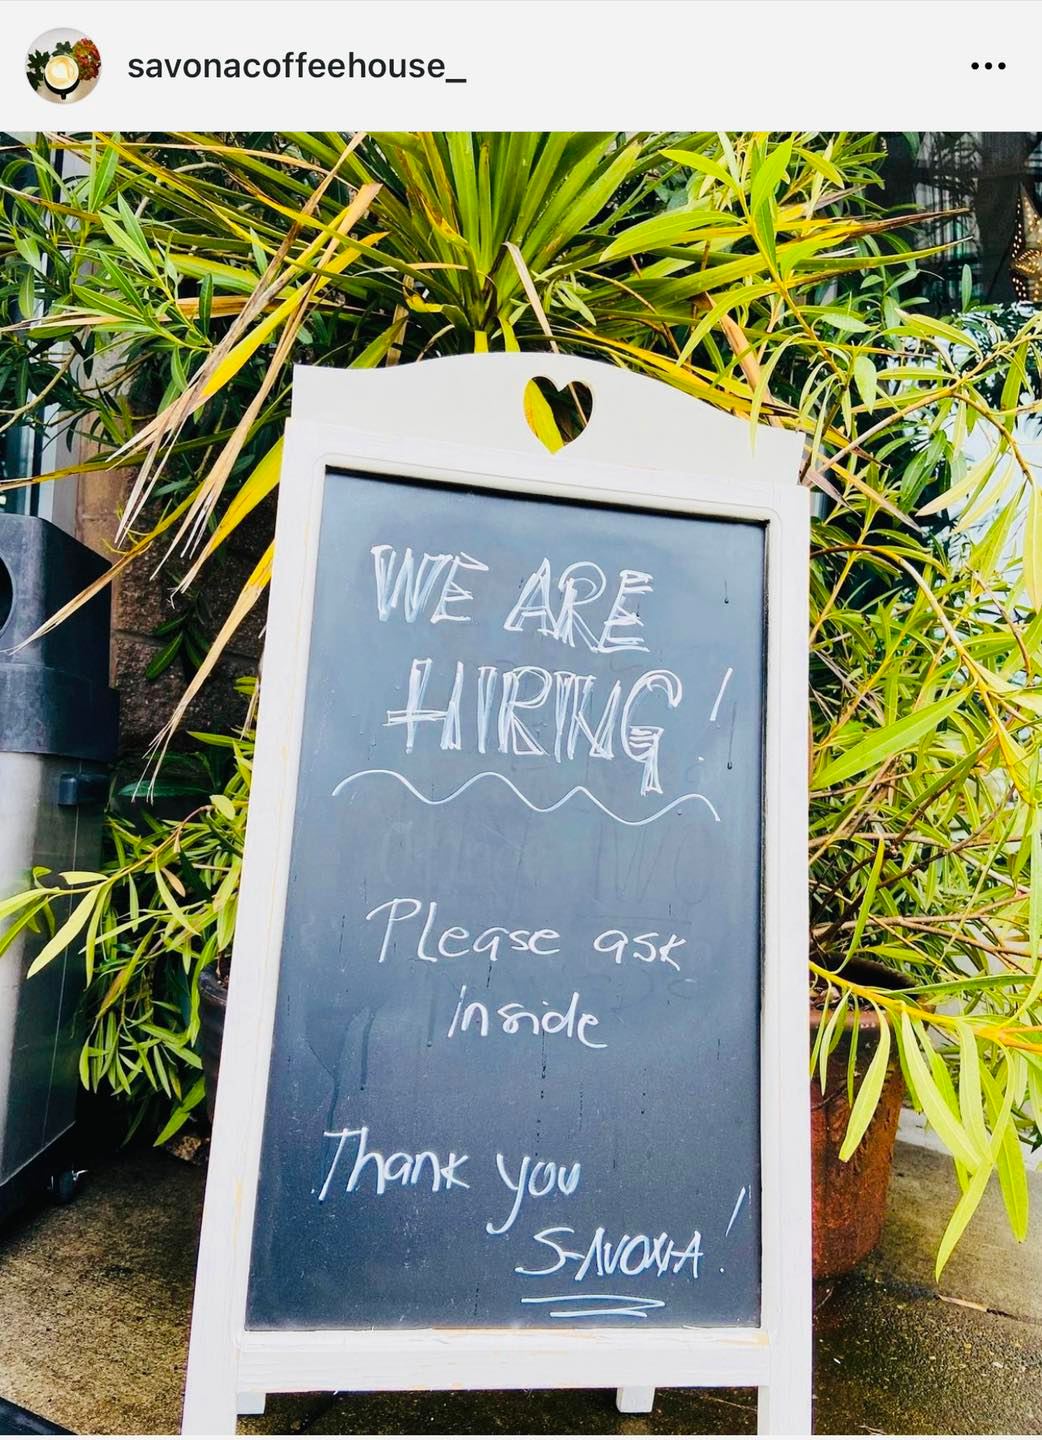 savonacoffeehouse_
WE ARE
HIRING!
Please ask
inside
Thank you
SAVONA!